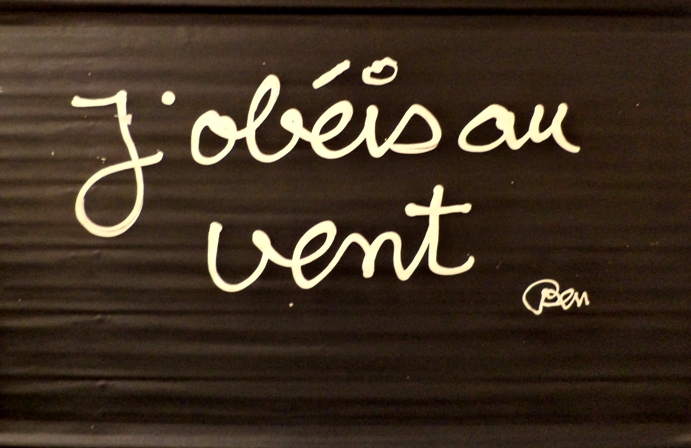 J'obéis au
vent
Ben